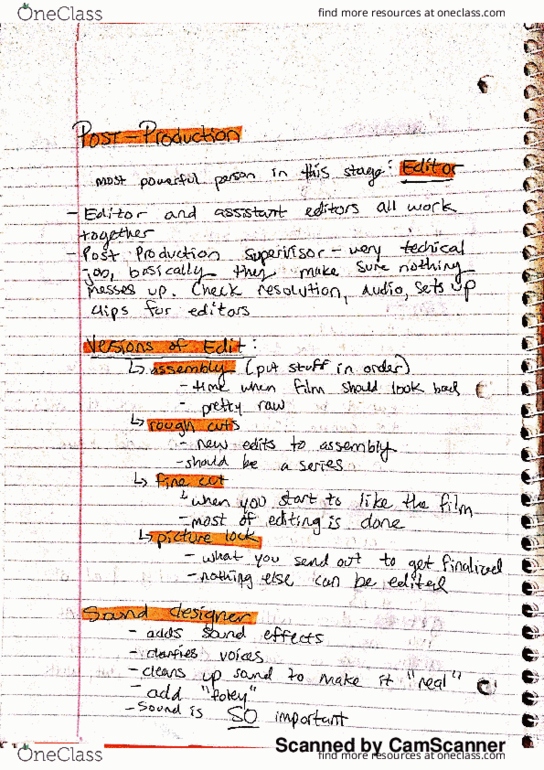 OneClass
find more resources at oneclass.com
Post-Production
most powerful person in this stage: Editor
- Editor and assistant editors all work
together
- Post Production supervisor - very techical
job, basically they make sure nothing
messes up. Check resolution, audio, sets up
clips for editors
Versions of Edit:
↳ assembly (put stuff in order)
- time when film should look bad
- pretty raw
↳ rough cuts
- new edits to assembly
- should be a series
↳ Fine cut
↳ when you start to like the film
- most of editing is done
↳ picture lock
- what you send out to get finalized
- nothing else can be edited
Sound designer
- adds sound effects
- clarifies voices
- cleans up sound to make it "real"
- add "foley"
- Sound is SO important
Scanned by CamScanner
OneClass
find more resources at oneclass.com